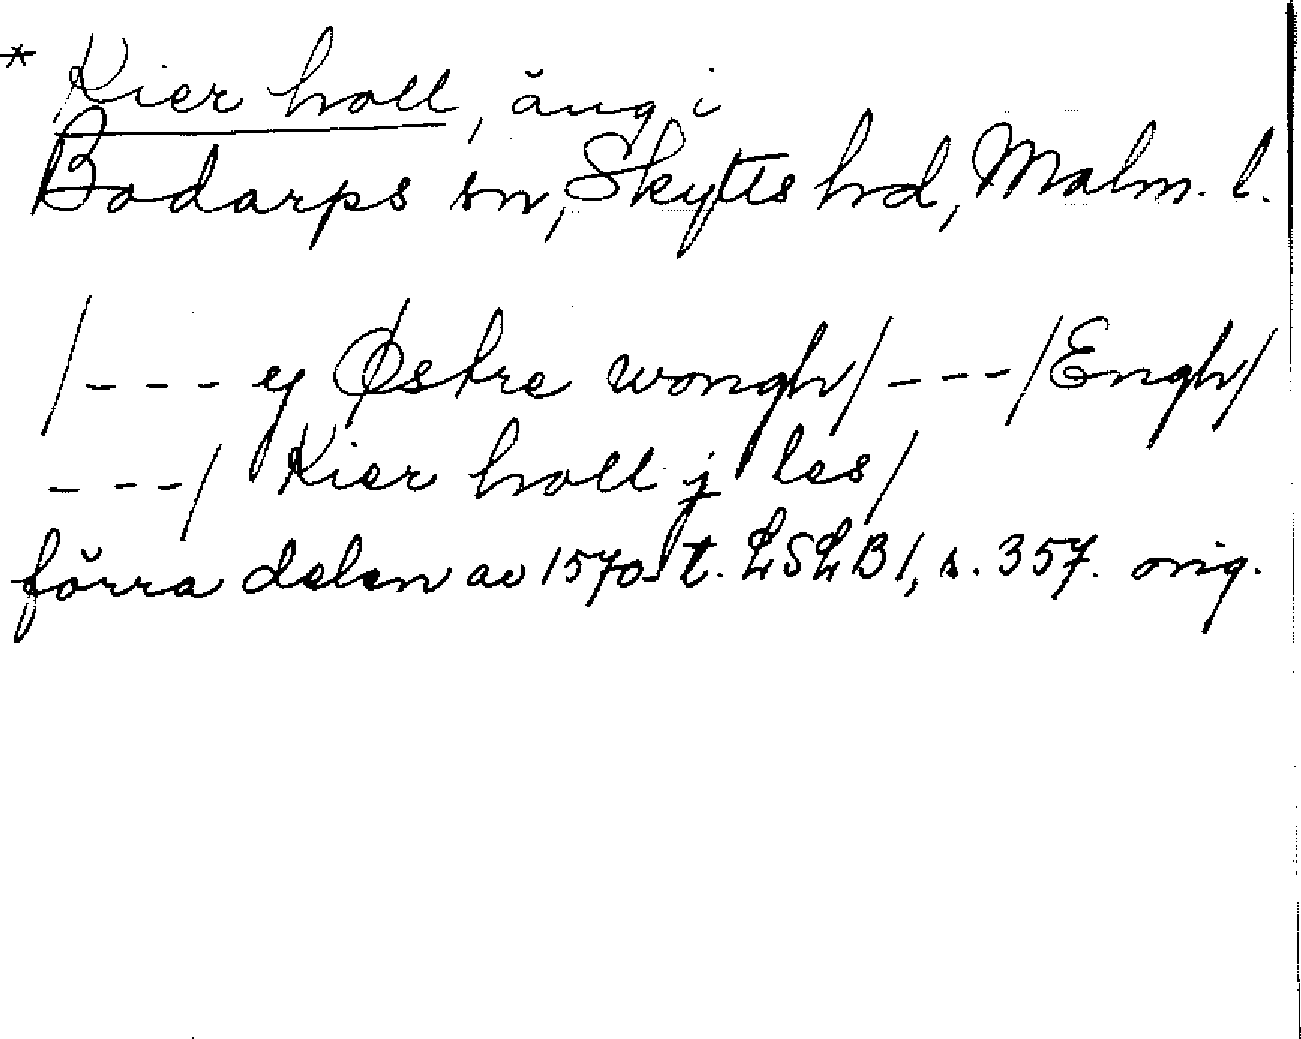 * Kier holl, äng i
Bodarps sn, Skytts hd, Malm. l.
/--- ey Østre wongh/ ---/Engh/
---/ Kier holl j les/
förra delen av 1570 t. LSLB 1, s. 357. orig.